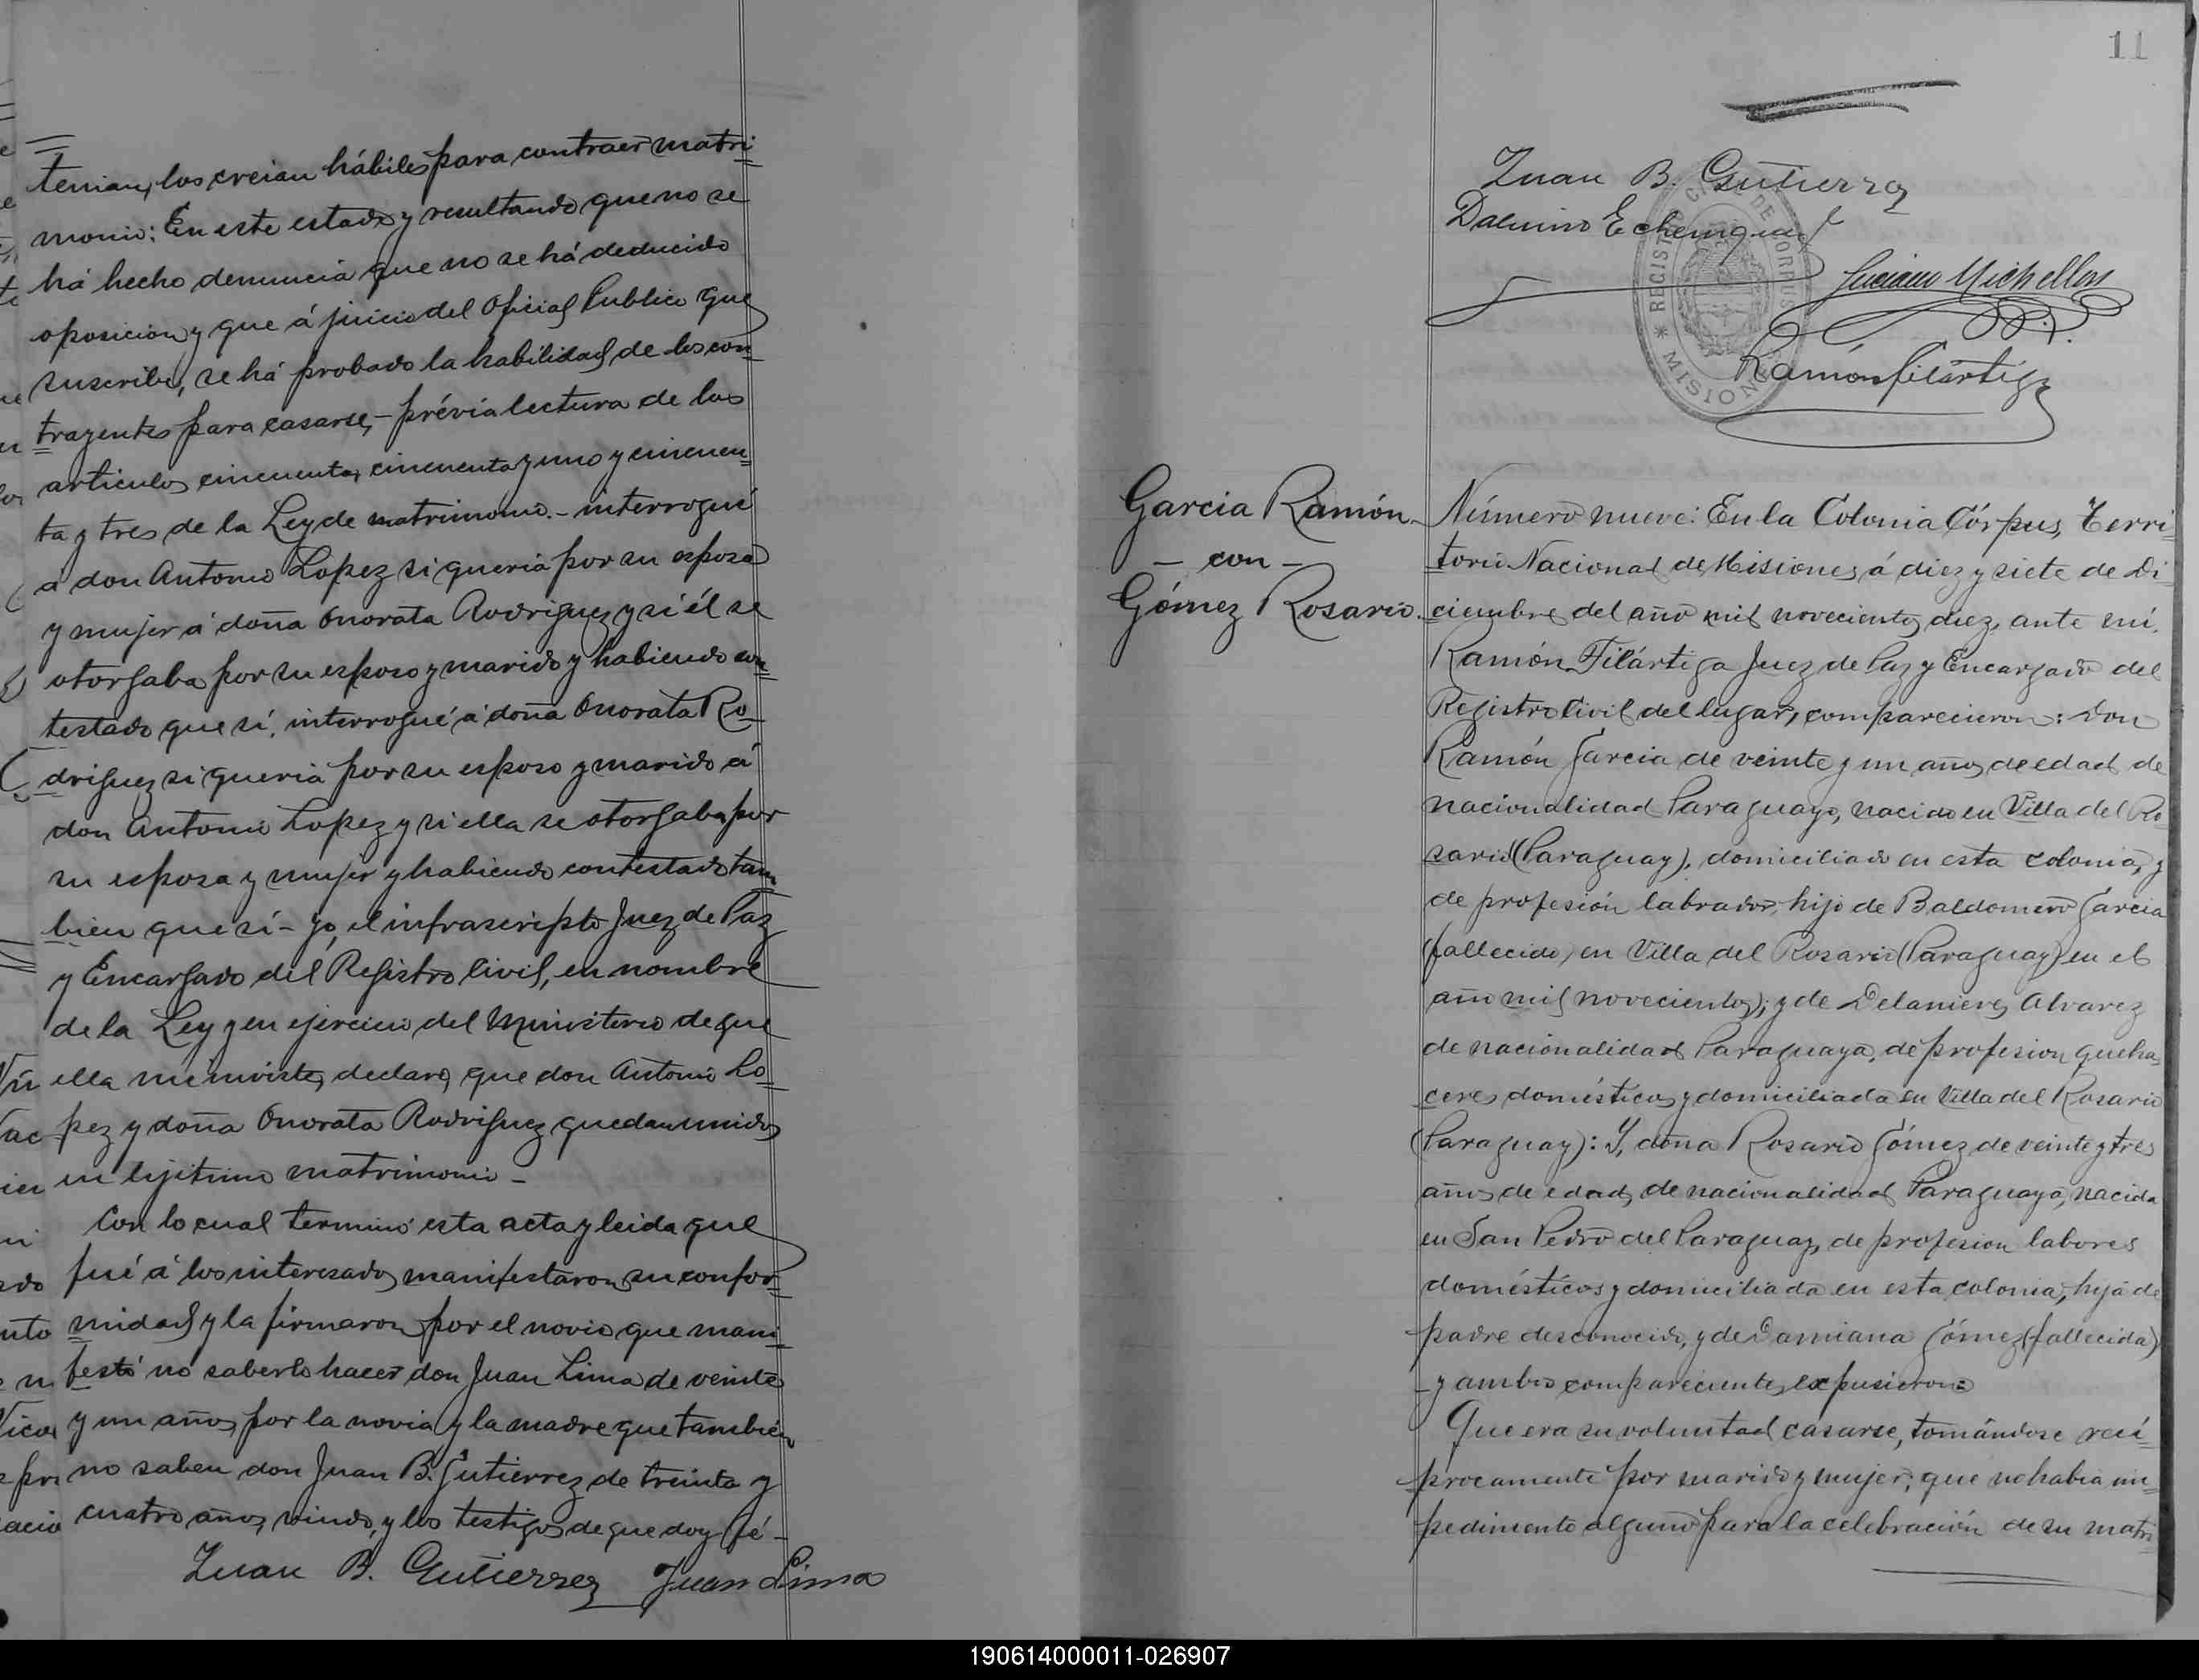 tenian, los creian hábiles para contraer matri=
monio: En este estado y resultando que no se
há hecho denuncia que no se há deducido
oposicion y que á juicio del Oficial Publico que
suscribe, se há probado la habilidad de los con=
trayentes para casarse, - prévia lectura de los
articulos cincuenta, cincuenta y uno y cincuen=
ta y tres de la Ley de matrimonio. - interrogué
á don Antonio Lopez si queria por su esposa
y mujer á doña Onorata Rodriguez y si él se
otorgaba por su esposo y marido y habiendo con=
testado que sí, interrogué á doña Onorata Ro=
driguez si queria por su esposo y marido á
don Antonio Lopez y si ella se otorgaba por
su esposa y mujer y habiendo contestado tam=
bien que sí - yo, el infrascripto Juez de Paz
y Encargado del Registro Civil, en nombre
de la Ley y en ejercicio del Ministerio de que
ella me inviste, declaro, que don Antonio Lo=
pez y doña Onorata Rodriguez quedan unidos
en lejitimo matrimonio -
Con lo cual terminó esta acta y leida que
fué á los interesados manifestaron su confor=
midad y la firmaron por el novio que mani=
festó no saberlo hacer don Juan Lima de veinte
y un años, por la novia y la madre que también
no saben don Juan B. Gutierrez de treinta y
cuatro años, viudo, y los testigos de que doy fé -
Juan B. Gutierrez Juan Lima
11
Juan B. Gutierrez
REGISTRO CIVIL DE CORPUS
* MISIONES
Luciano Michellon
Ramón Filártiga
Garcia Ramón
- con -
Gómez Rosario.
Número nueve: En la Colonia Córpus, Terri=
torio Nacional de Misiones, á diez y siete de Di
ciembre del año mil novecientos diez, ante mí,
Ramón Filártiga Juez de Paz y Encargado del
Registro Civil del lugar, comparecieron: Don
Ramón Garcia de veinte y un años de edad de
nacionalidad Paraguayo, nacido en Villa del Ro
sario (Paraguay), domiciliado en esta colonia, y
de profesión labrador, hijo de Baldomero Garcia
(fallecido, en Villa del Rosario (Paraguay) en el
año mil novecientos); y de Delanieves Alvarez
de nacionalidad Paraguaya, de profesion queha=
ceres domésticos y domiciliada en Villa del Rosario
(Paraguay): Y, doña Rosario Gómez de veinte y tres
años de edad, de nacionalidad Paraguaya, nacida
en San Pedro del Paraguay, de profesion labores
domésticos y domiciliada en esta colonia, hija de
padre desconocido, y de Damiana Gómez (fallecida)
- y ambos comparecientes expusieron:
Que era su voluntad casarse, tomándose recí=
procamente por marido y mujer; que no habia im=
pedimento alguno para la celebración de su matri
190614000011-026907